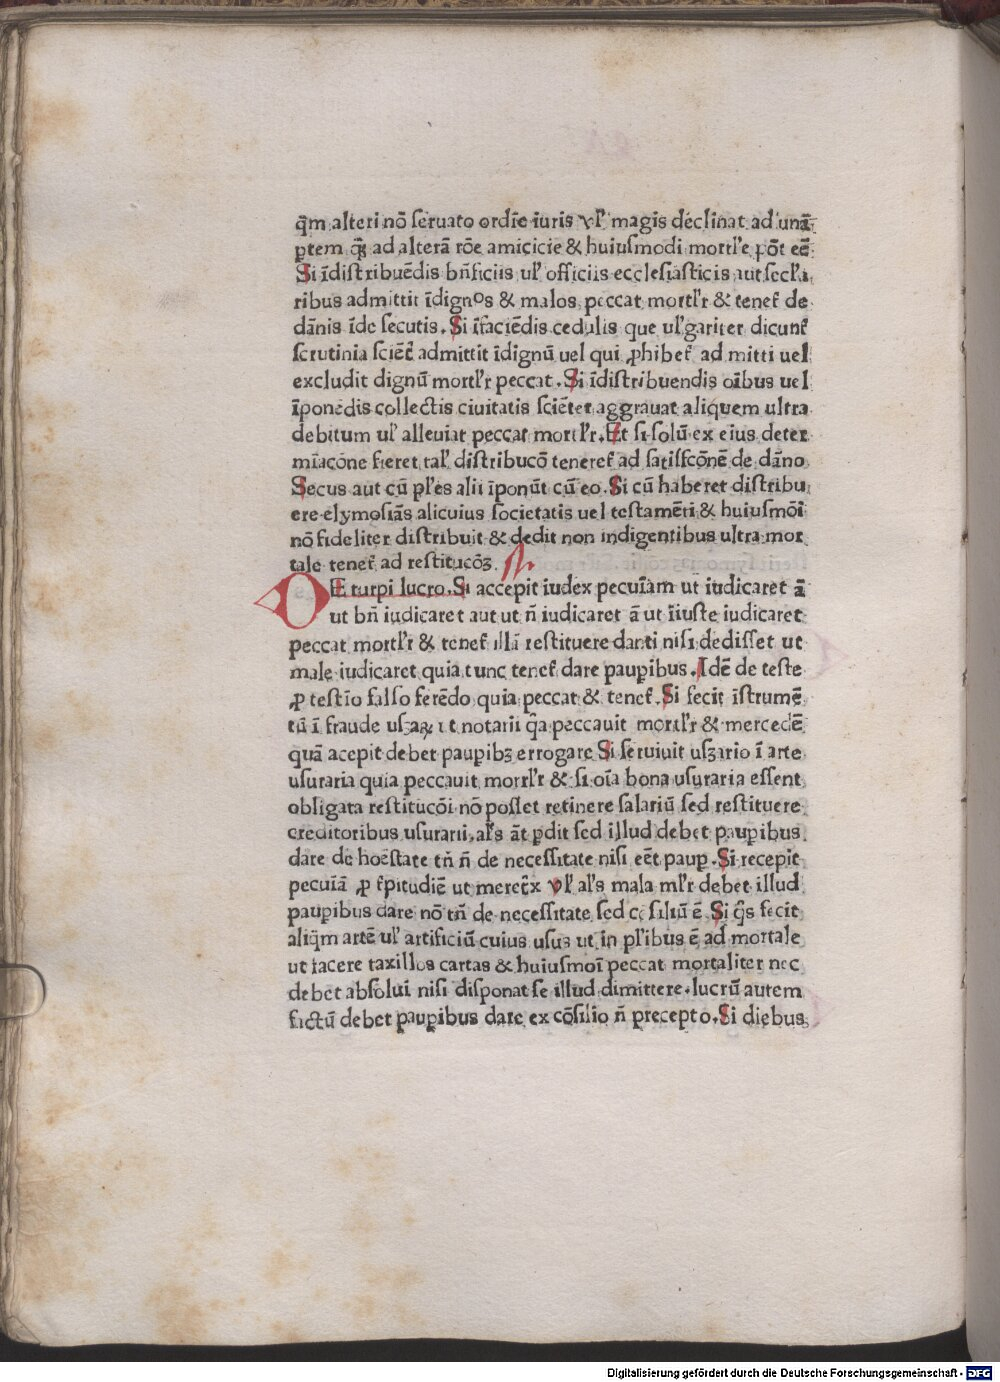 q̄m alteri nō seruato ordīe iuris vl' magis declinat ad unā
ꝑtem q̄ꝫ ad alterā rōe amicicie & huiusmodi mortl'e pōt eē
Si īdistribuēdis bn̄ficiis ul' officiis ecclesiasticis aut secl'a
ribus admittit īdignos & malos peccat mortl'r & tenet̄ de
dānis īde secutis. Si ī faciēdis cedulis que ul'gariter dicunt̄
scrutinia sciēt̄ admittit īdignū uel qui ꝓhibet̄ ad mitti uel
excludit dignū mortl'r peccat. Si īdistribuendis oībus uel
īponēdis collectis ciuitatis sciēter aggrauat aliquem ultra
debitum ul' alleuiat peccat mortl'r. Et si solū ex eius deter
mīacōne fieret tal' distribucō teneret̄ ad satisfcōnē de dāno
Secus aut cū pl'es alii īponūt cū eo. Si cū haberet distribu
ere elymosiās alicuius societatis uel testamēti & huiusmōi
nō fideliter distribuit & dedit non indigentibus ultra mor
tale tenet̄ ad restitucōꝫ
DE turpi lucro. Si accepit iudex pecuīam ut iudicaret ā
ut bn̄ iudicaret aut ut n̄ iudicaret ā ut īiuste iudicaret
peccat mortl'r & tenet̄ illā restituere danti nisi dedisset ut
male iudicaret quia tunc tenet̄ dare pauꝑibus. Idē de teste
ꝓ testīo falso ferēdo quia peccat & tenet̄. Si fecit īstrumē
tū ī fraude usꝫaꝝ ut notarii q̄a peccauit mortl'r & mercedē
quā acepit debet pauꝑibꝫ errogare Si seruiuit usꝫario ī arte
usuraria quia peccauit mortl'r & si oīa bona usuraria essent
obligata restitucōi nō posset retinere salariū sed restituere
creditoribus usurarii. al's āt ꝑdit sed illud debet pauꝑibus
dare de hoēstate tn̄ n̄ de necessitate nisi eēt pauꝑ. Si recepit
pecuīā ꝓ t̄pitudīe ut meret̄x vl' al's mala ml'r debet illud
pauꝑibus dare nō tn̄ de necessitate sed cōsiliū ē. Si q̄s fecit
aliq̄m artē ul' artificiū cuius usus ut in pl'ibus ē ad mortale
ut facere taxillos cartas & huiusmoī peccat mortaliter nec
debet absolui nisi disponat se illud dimittere. lucrū autem
fictū debet pauꝑibus dare ex cōsilio n̄ precepto. Si diebus
Digitalisierung gefördert durch die Deutsche Forschungsgemeinschaft - DFG